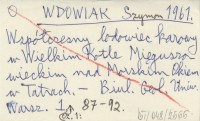 WDOWIAK Szymon 1961.
Współczesny lodowiec karowy
w Wielkim Kotle Mięguszo-
wieckim nad Morskim Okiem
w Tatrach. – Biul. Geol. Uniw.
Warsz. 1, 87-92.
cz. 1: